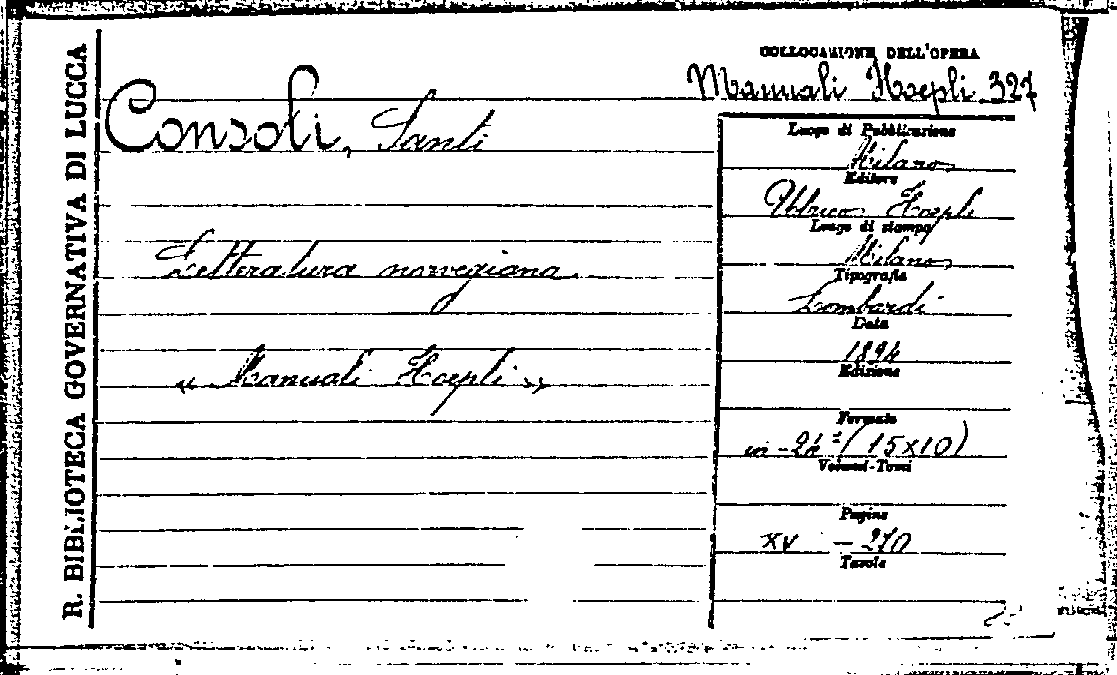 R. BIBLIOTECA GOVERNATIVA DI LUCCA
COLLOCAZIONE DELL'OPERA
Manuali Hoepli 327
Consoli, Santi
Letteratura norvegiana.
« Manuali Hoepli »
Luogo di Pubblicazione
Milano
Editore
Ulrico Hoepli
Luogo di stampa
Milano
Tipografia
Lombardi
Data
1894
Edizione
Formato
in-24º (15x10)
Volumi-Tomi
Pagine
XV - 270
Tavole